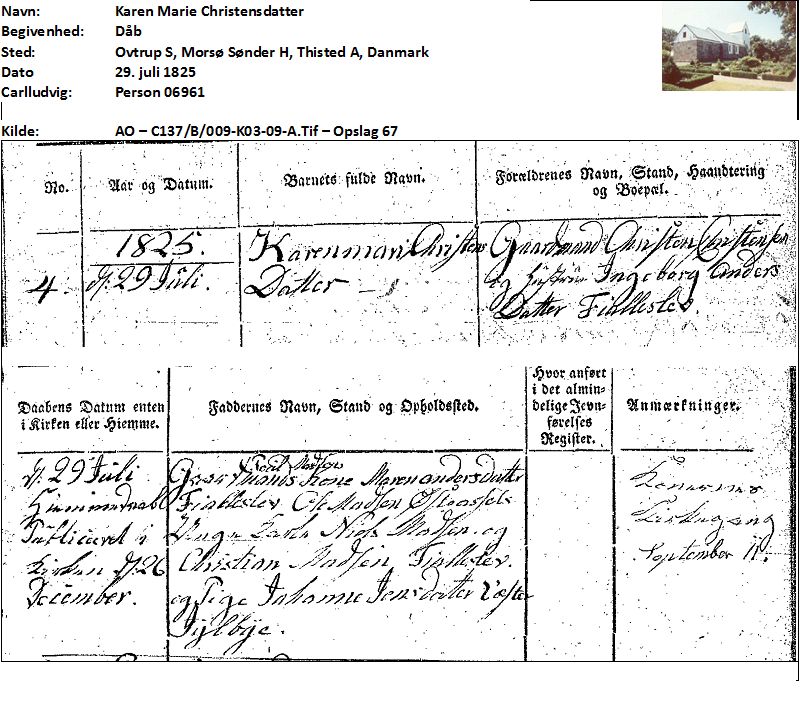 Navn: Karen Marie Christensdatter
Begivenhed: Dåb
Sted: Ovtrup S, Morsø Sønder H, Thisted A, Danmark
Dato 29. juli 1825
Carlludvig: Person 06961
Kilde: AO – C137/B/009-K03-09-A.Tif – Opslag 67
No.
Aar og Datum.
Barnets fulde Navn.
Forældrenes Navn, Stand, Haandtering
og Boepæl.
4.
1825.
d. 29 Juli.
Karenmari Christens
Datter
Gaardmand Christen Christensen
og Hustrue Ingeborg Anders
Datter Fiallesløv.
Daabens Datum enten
i Kirken eller Hiemme.
Faddernes Navn, Stand og Opholdssted.
Hvor anført
i det almin-
delige Jevn-
førelses
Register.
Anmærkninger.
d. 29 Juli
Hiemmedøbt
Publiceret i
Kirken d. 26
December.
Poul Madsen
Kone Maren andersdatter
Madsen
Unge Karle Niels Madsen og
Christian Madsen Fialleslev.
og Pige Johanne Jensdatter Vester
Jylbye.
Konernes
Kirkegang
September 11.